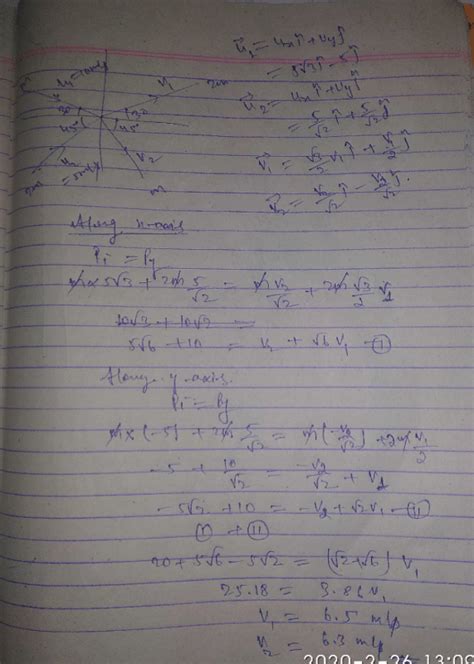 u⃗₁ = uₓî + u_yĵ
= 5√3 î - 5 ĵ
u⃗₂ = uₓî + u_yĵ
= 5/√2 î + 5/√2 ĵ
v⃗₁ = √3/2 v₁ î + v₁/2 ĵ
v⃗₂ = v₂/√2 î - v₂/√2 ĵ.
v₁ 2m
30 30
45° 45°
v₂
2m m
Along x-axis
Pi = Pf
m×5√3 + 2m 5/√2 = m v₂/√2 + 2m √3/2 v₁
10√3 + 10√2 =
5√6 + 10 = v₂ + √6 v₁ - Ⓘ
Along y axis.
Pi = Pf
m×(-5) + 2m 5/√2 = m(-v₂/√2) + 2m v₁/2
-5 + 10/√2 = -v₂/√2 + v₁
-5√2 + 10 = -v₂ + √2 v₁ - Ⓘ Ⓘ
Ⓘ + Ⓘ Ⓘ
20 + 5√6 - 5√2 = (√2+√6) v₁
25.18 = 3.86 v₁
v₁ = 6.5 m/s
v₂ = 6.3 m/s
2020-2-26 13:09